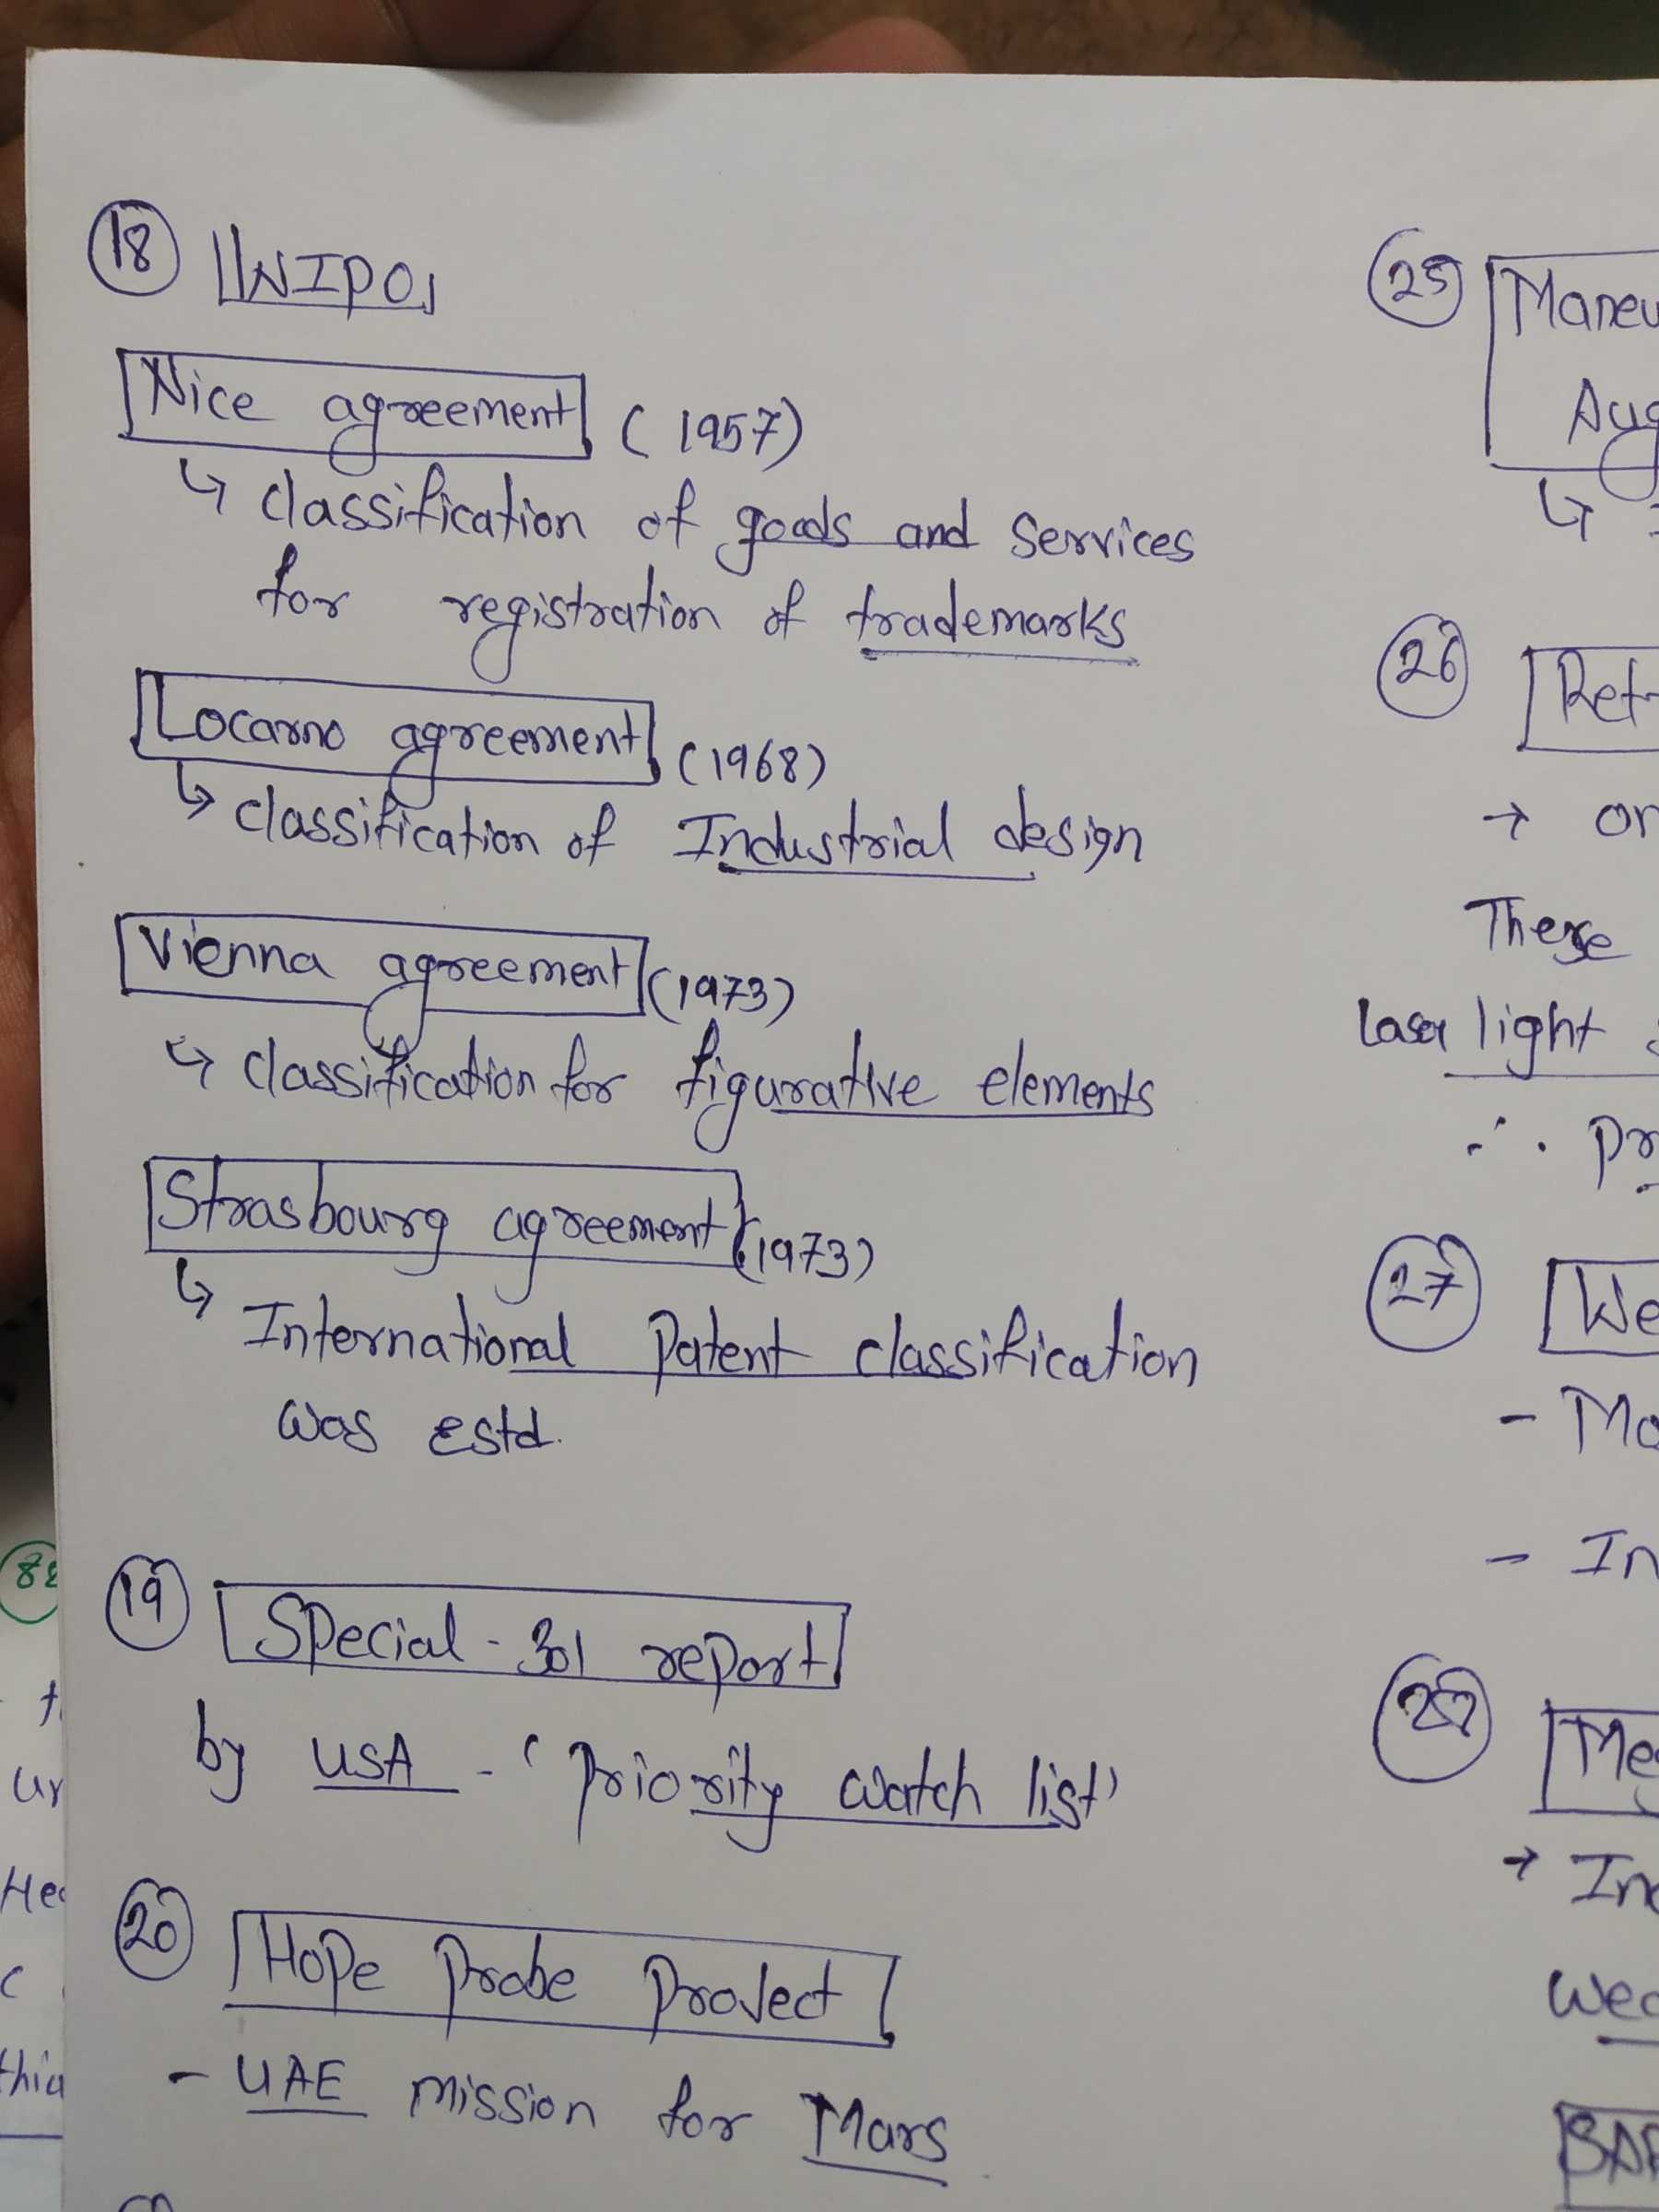 18 WIPO
Nice agreement (1957)
↳ classification of goods and services
for registration of trademarks
Locarno agreement (1968)
↳ classification of Industrial design
Vienna agreement (1973)
↳ classification for figurative elements
Strasbourg agreement (1973)
↳ International Patent classification
was estd.
19 Special-301 report
by USA - 'Priority watch list'
20 Hope Probe Project
- UAE mission for Mars
25 Maneu
Aug
↳
26 Ret
→ or
These
laser light
∴ pr
27 We
- Mo
- In
Me
→ In
wea